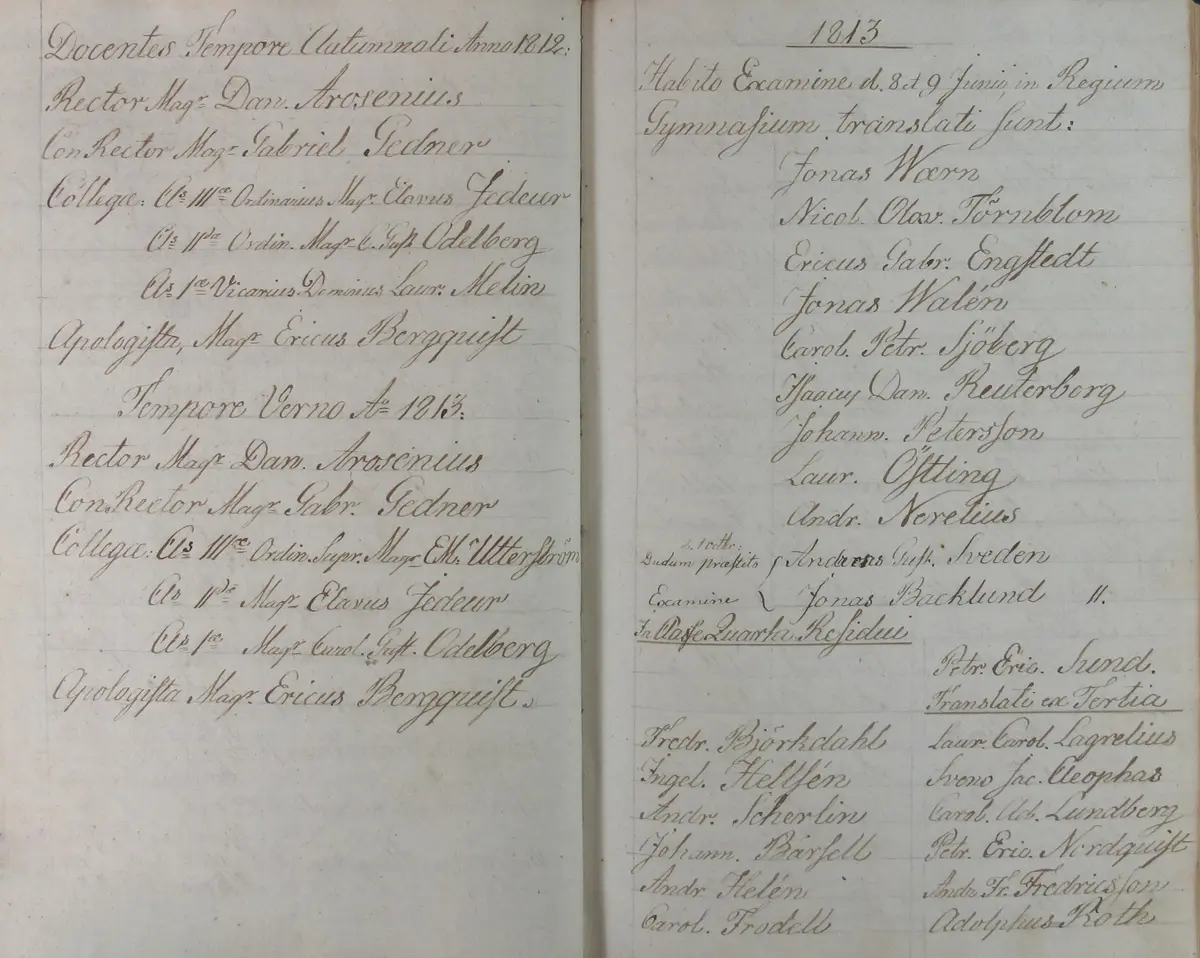 Docentes Tempore Autumnali Anno 1812:
Rector Magr Dan. Arosenius
ConRector Magr Gabriel Gedner
Collegæ: Cls IIIæ Ordinarius Magr. Elavus Jedeur
Cls IIdæ Ordin. Magr C. Gust. Odelberg
Cls Iæ Vicarius Dominus Laur. Melin
Apologista, Magr Ericus Bergquist
Tempore Verno Ao 1813:
Rector Magr Dan. Arosenius
ConRector Magr Gabr. Gedner
Collegæ: Cls IIIæ Ordin. Supr. Magr Utterström
Cls IIdæ Magr Elavus Jedeur
Cls Iæ Magr Carol. Gust. Odelberg
Apologista Magr. Ericus Bergquist.
1813
Habito Examine d. 8 et 9 Junii, in Regium
Gymnasium translati sunt:
Jonas Wærn
Nicol. Olav. Törnblom
Ericus Gabr. Engstedt
Jonas Walén
Carol. Petr. Sjöberg
Isaacus Dan. Reuterborg
Johann. Petersson
Laur. Östling
Andr. Nerelius
Dudum præstito { Andreas Gust. Sveden
Examine Jonas Backlund 11.
In Classe Quarta Residui
Petr. Eric. Sund.
Translati ex Tertia
Fredr. Björkdahl
Laur. Carol. Lagrelius
Ingel. Hellsén
Sveno Jac. Cleophas
Andr. Scherlin
Carol. Ad. Lundberg
Johann. Barsell
Petr. Eric. Nordquist
Andr Helén
Andr. Fr. Fredricsson
Carol. Frodell
Adolphus Roth